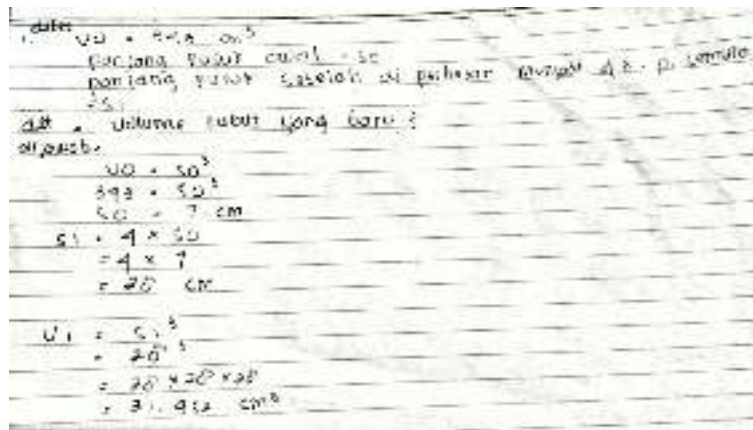 diket
1. V0 = 343 cm³
panjang rusuk awal = S0
panjang rusuk setelah di perbesar menjadi 4 x p. semula
= S1
dit = Volume kubus yang baru ?
dijawab =
V0 = S0³
343 = S0³
S0 = 7 cm
S1 = 4 x S0
= 4 x 7
= 28 cm
V1 = S1³
= 28³
= 28 x 28 x 28
= 21.952 cm³